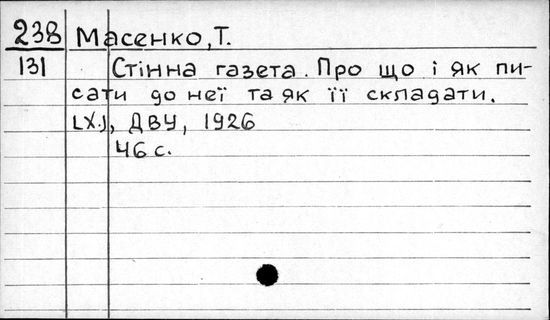 238 Масенко, Т.
131 Стінна газета. Про що і як пи-
сати до неї та як її складати.
[Х.], ДВУ, 1926
46 с.